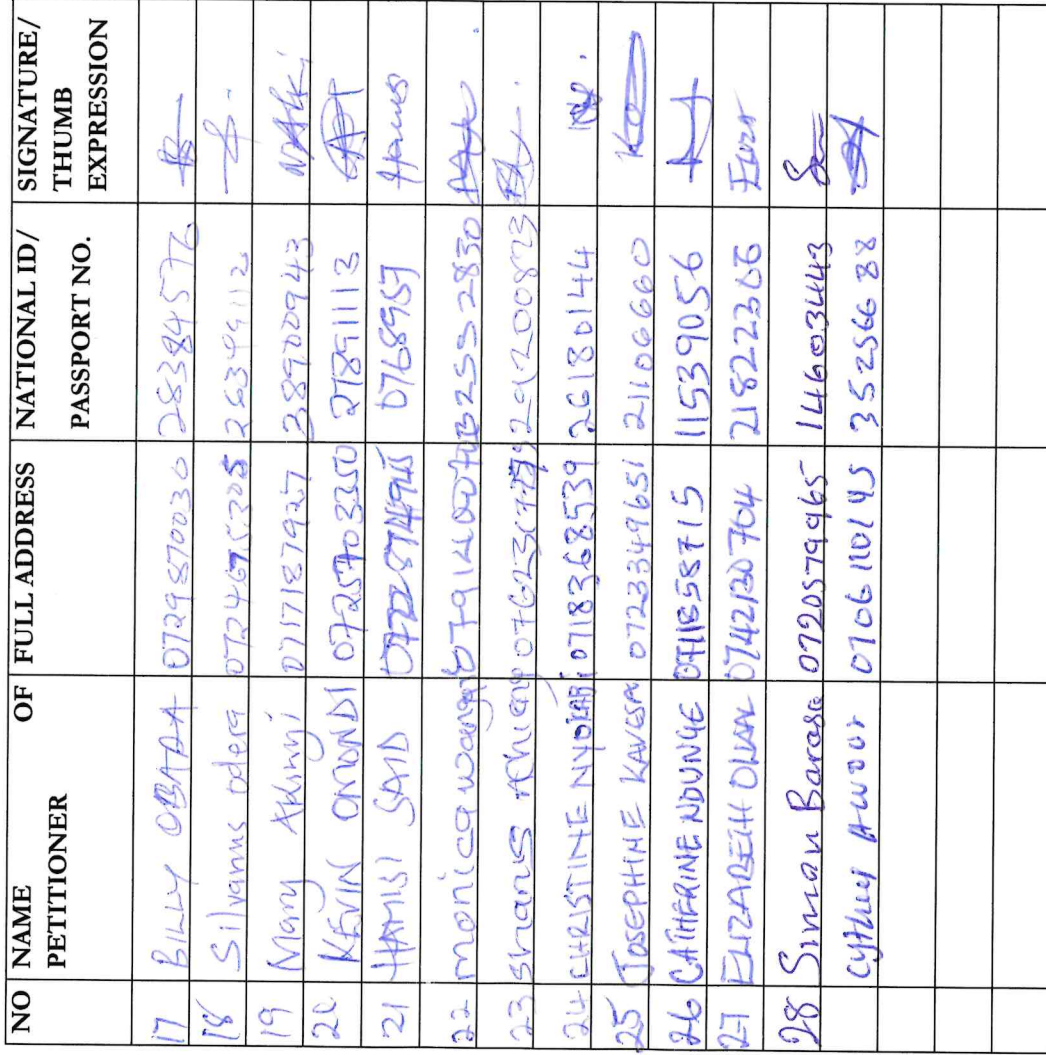 NO NAME OF PETITIONER FULL ADDRESS NATIONAL ID/ PASSPORT NO. SIGNATURE/ THUMB EXPRESSION
17 BILLY OBADA 0729870030 28384576
18 Silvanus odera 26349112
19 Mary Akinyi 0717187927 38900943
20 KEVIN OMONDI 0725703350 27891113
21 HAMISI SAID 0768957 Hamis
22 monica 
23 Achieng
24 CHRISTINE NYOKABI 0718368539 26180144
25 JOSEPHINE 0723349651 21106660
26 CATHERINE NDUNGE 0711558715 11539056
27 ELIZABETH 0742130704 21822366 ELIZA
28 Simon Barasa 0720579965 146034443
AWUOR 0106110145 35256688